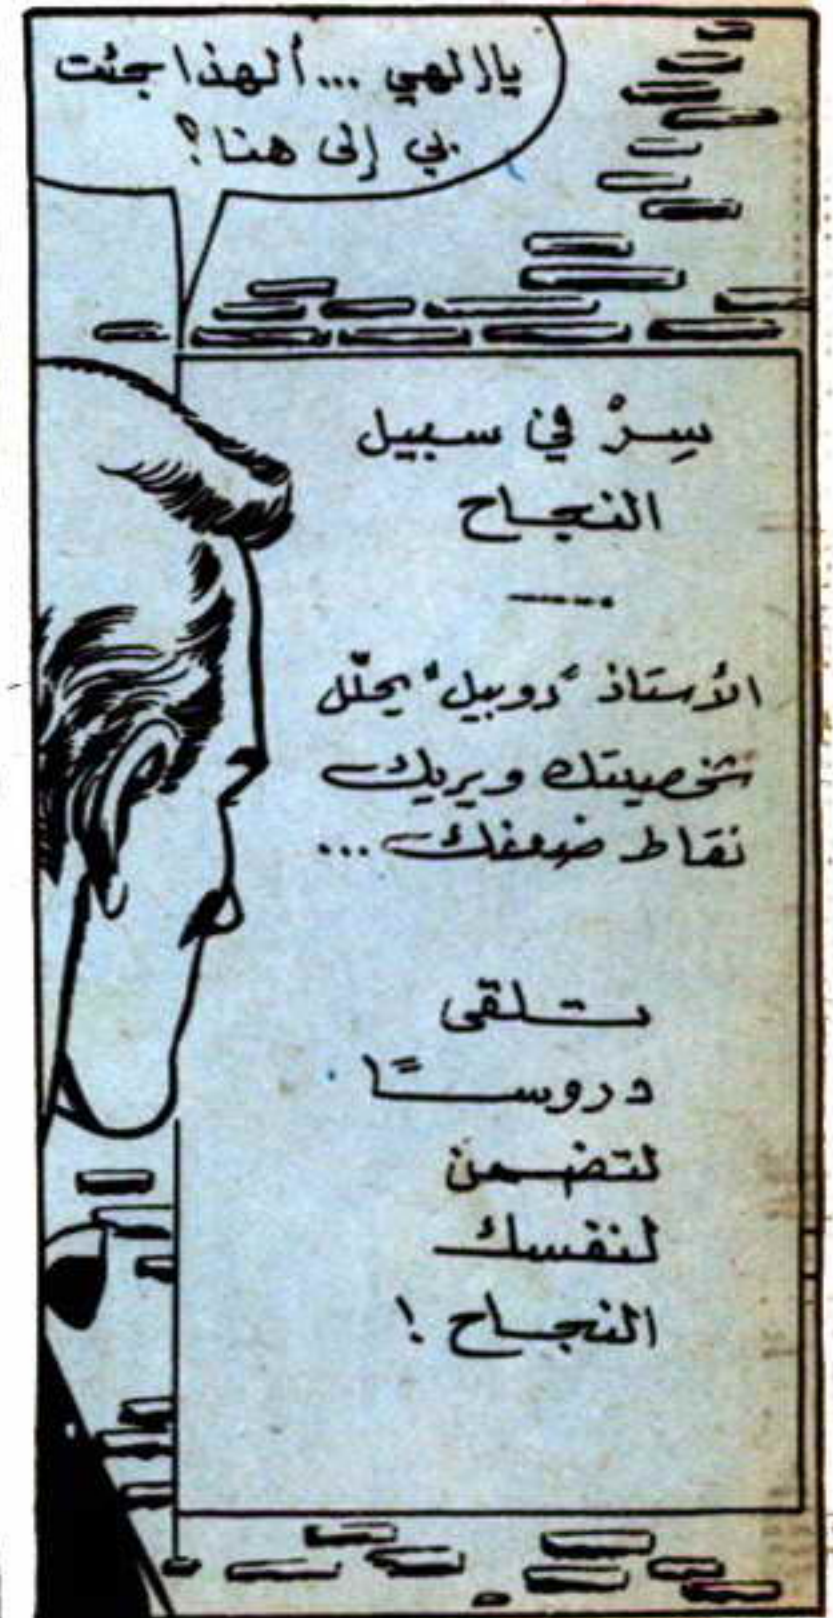 ياإلهي ...ألهذا جئت
بي إلى هنا؟
سِرْ في سبيل
النجاح
الأستاذ "دوبيل" يحلّل
شخصيتك ويريك
نقاط ضعفك ...
تتلقى
دروسًا
لتضمن
لنفسك
النجاح !